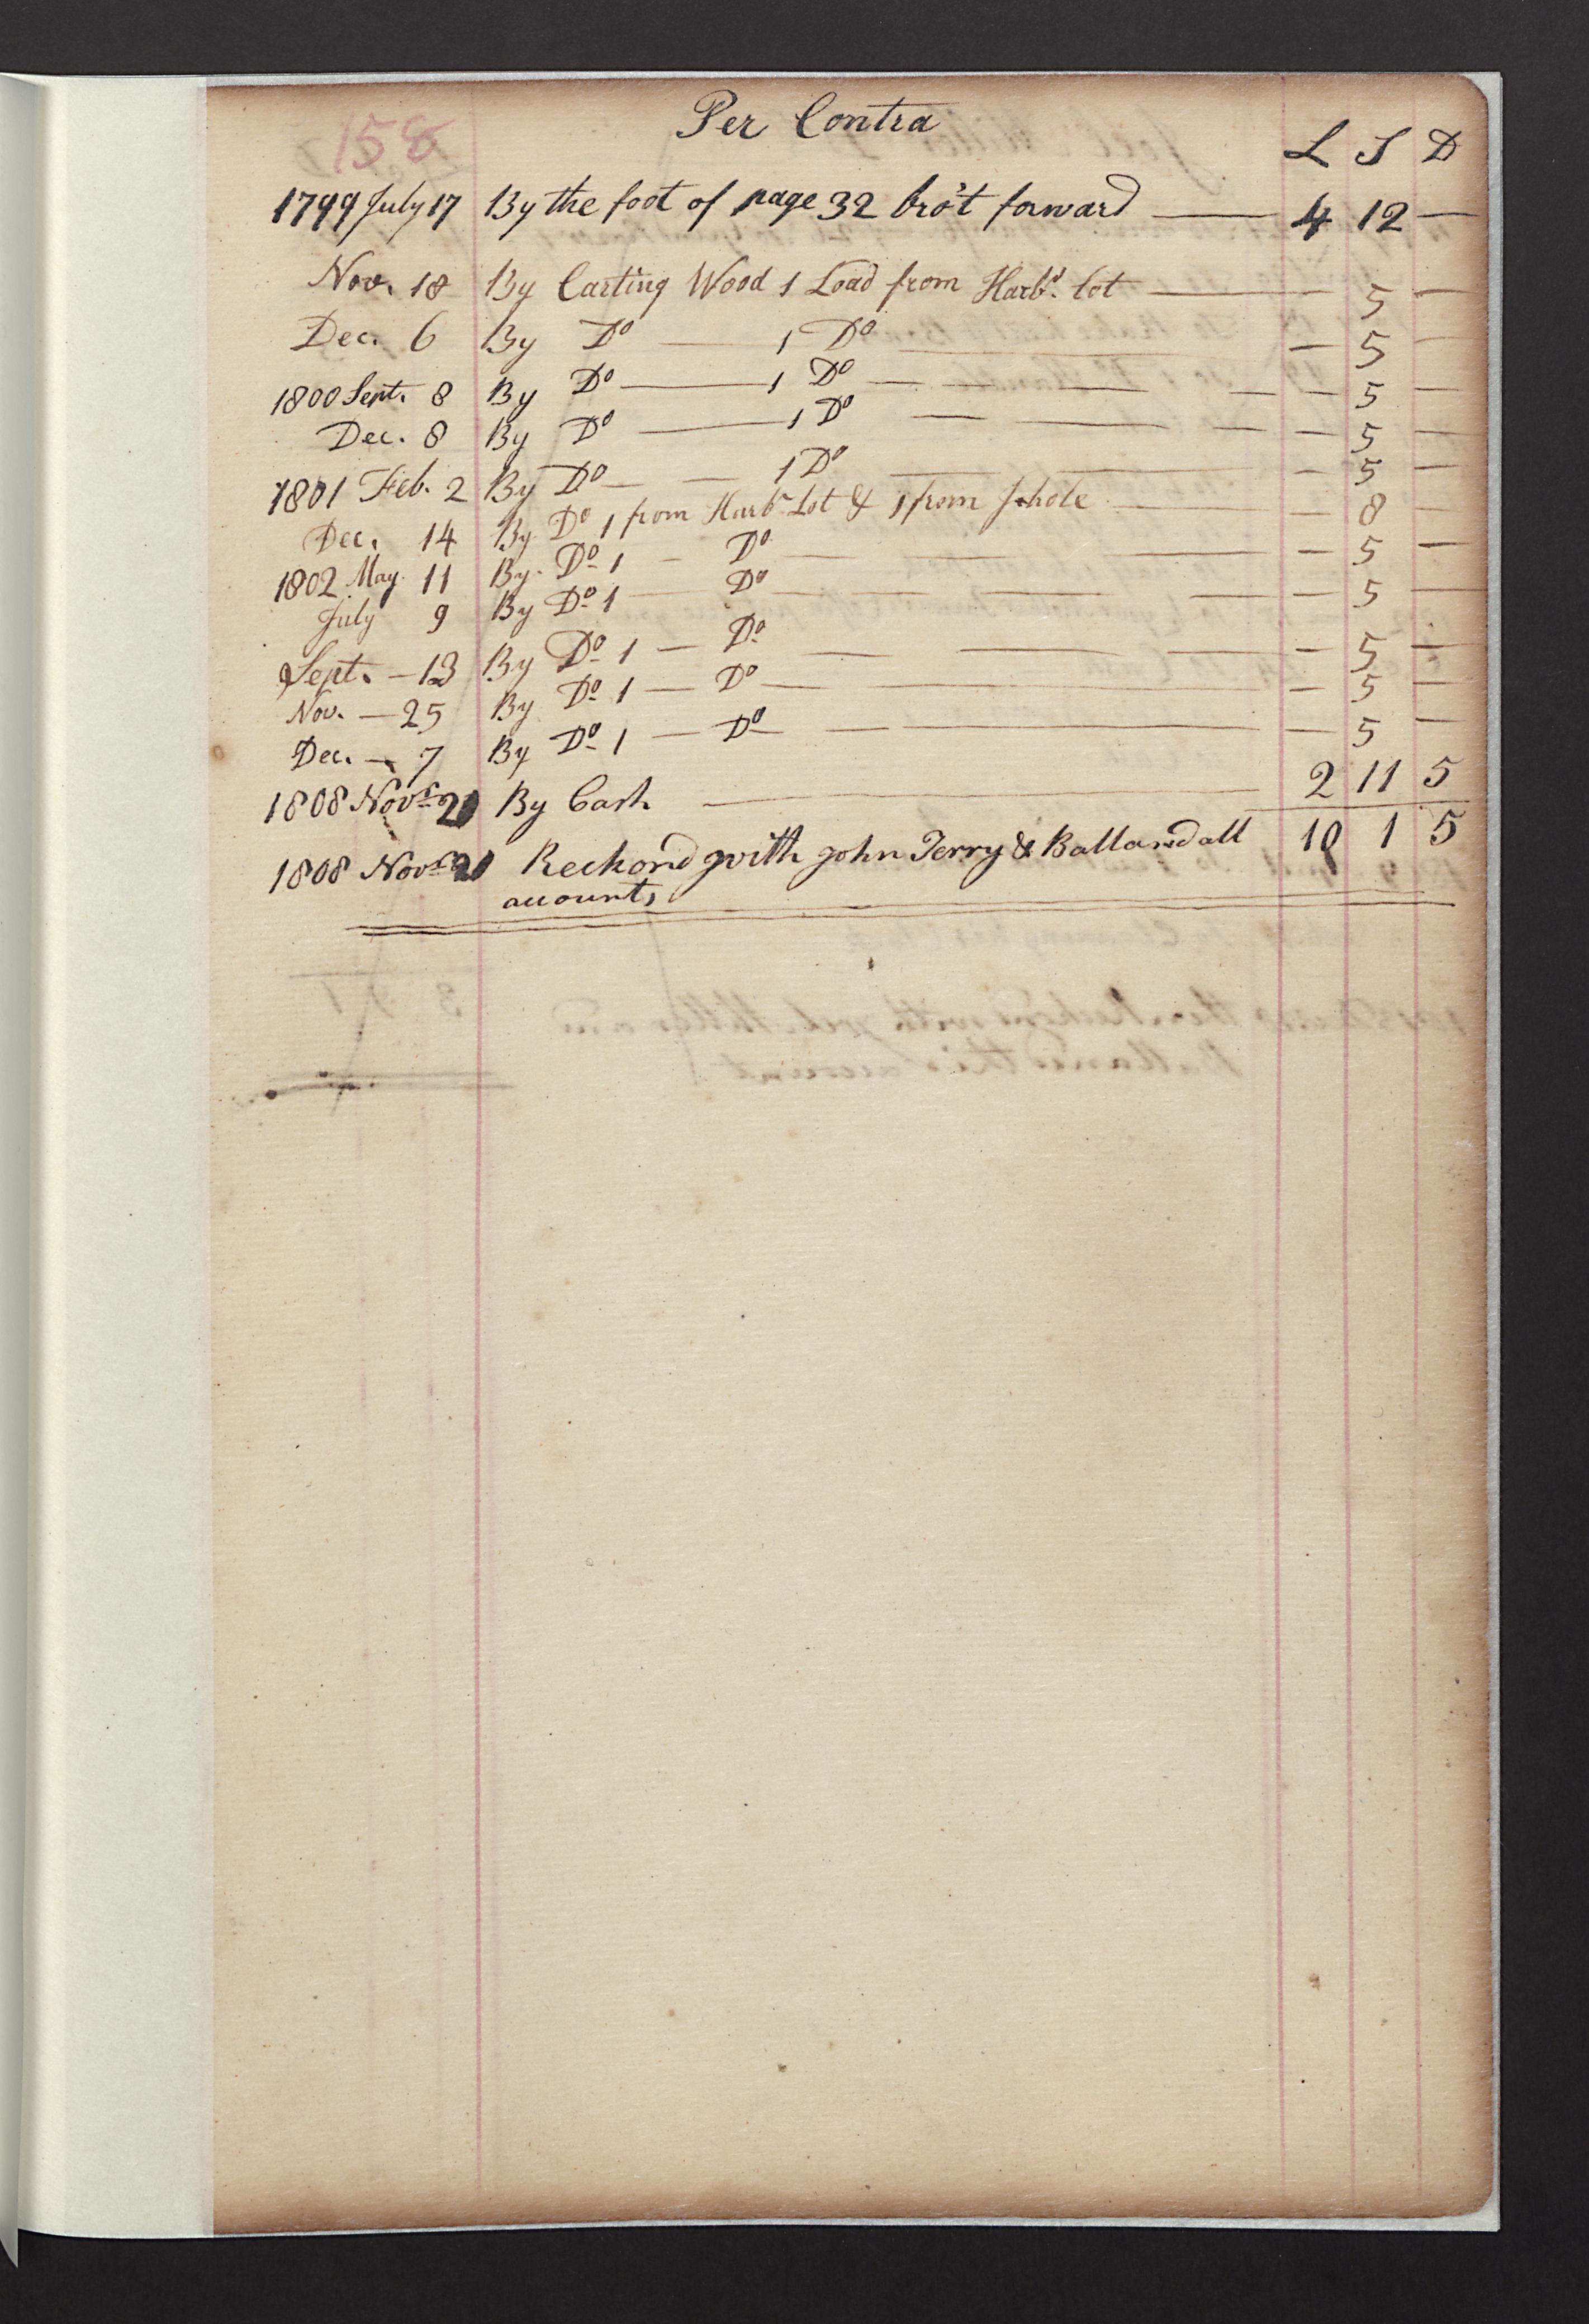 158
Per Contra
L S D
1799 July 17 By the foot of page 32 bro't forward — 4 12 —
Nov. 18 By Carting Wood 1 Load from Harbr. lot — — 5 —
Dec. 6 By Do — 1 Do — 5 —
1800 Sept. 8 By Do — 1 Do — — — — 5 —
Dec. 8 By Do — 1 Do — — — — 5 —
1801 Feb. 2 By Do — — 1 Do — — — 5 —
Dec. 14 By Do 1 from Harbr Lot & 1 from — — — 8 —
1802 May. 11 By Do 1 — Do — — — — 5 —
July 9 By Do 1 — Do — — — — 5 —
Sept. — 13 By Do 1 — Do — — — — 5 —
Nov. — 25 By Do 1 — Do — — — 5 —
Dec. — 7 By Do 1 — Do — — — 5 —
1808 Novr 20 By Cash — 2 11 5
1808 Novr 20 Reckond with John Terry & Ballansd all 10 1 5
accounts